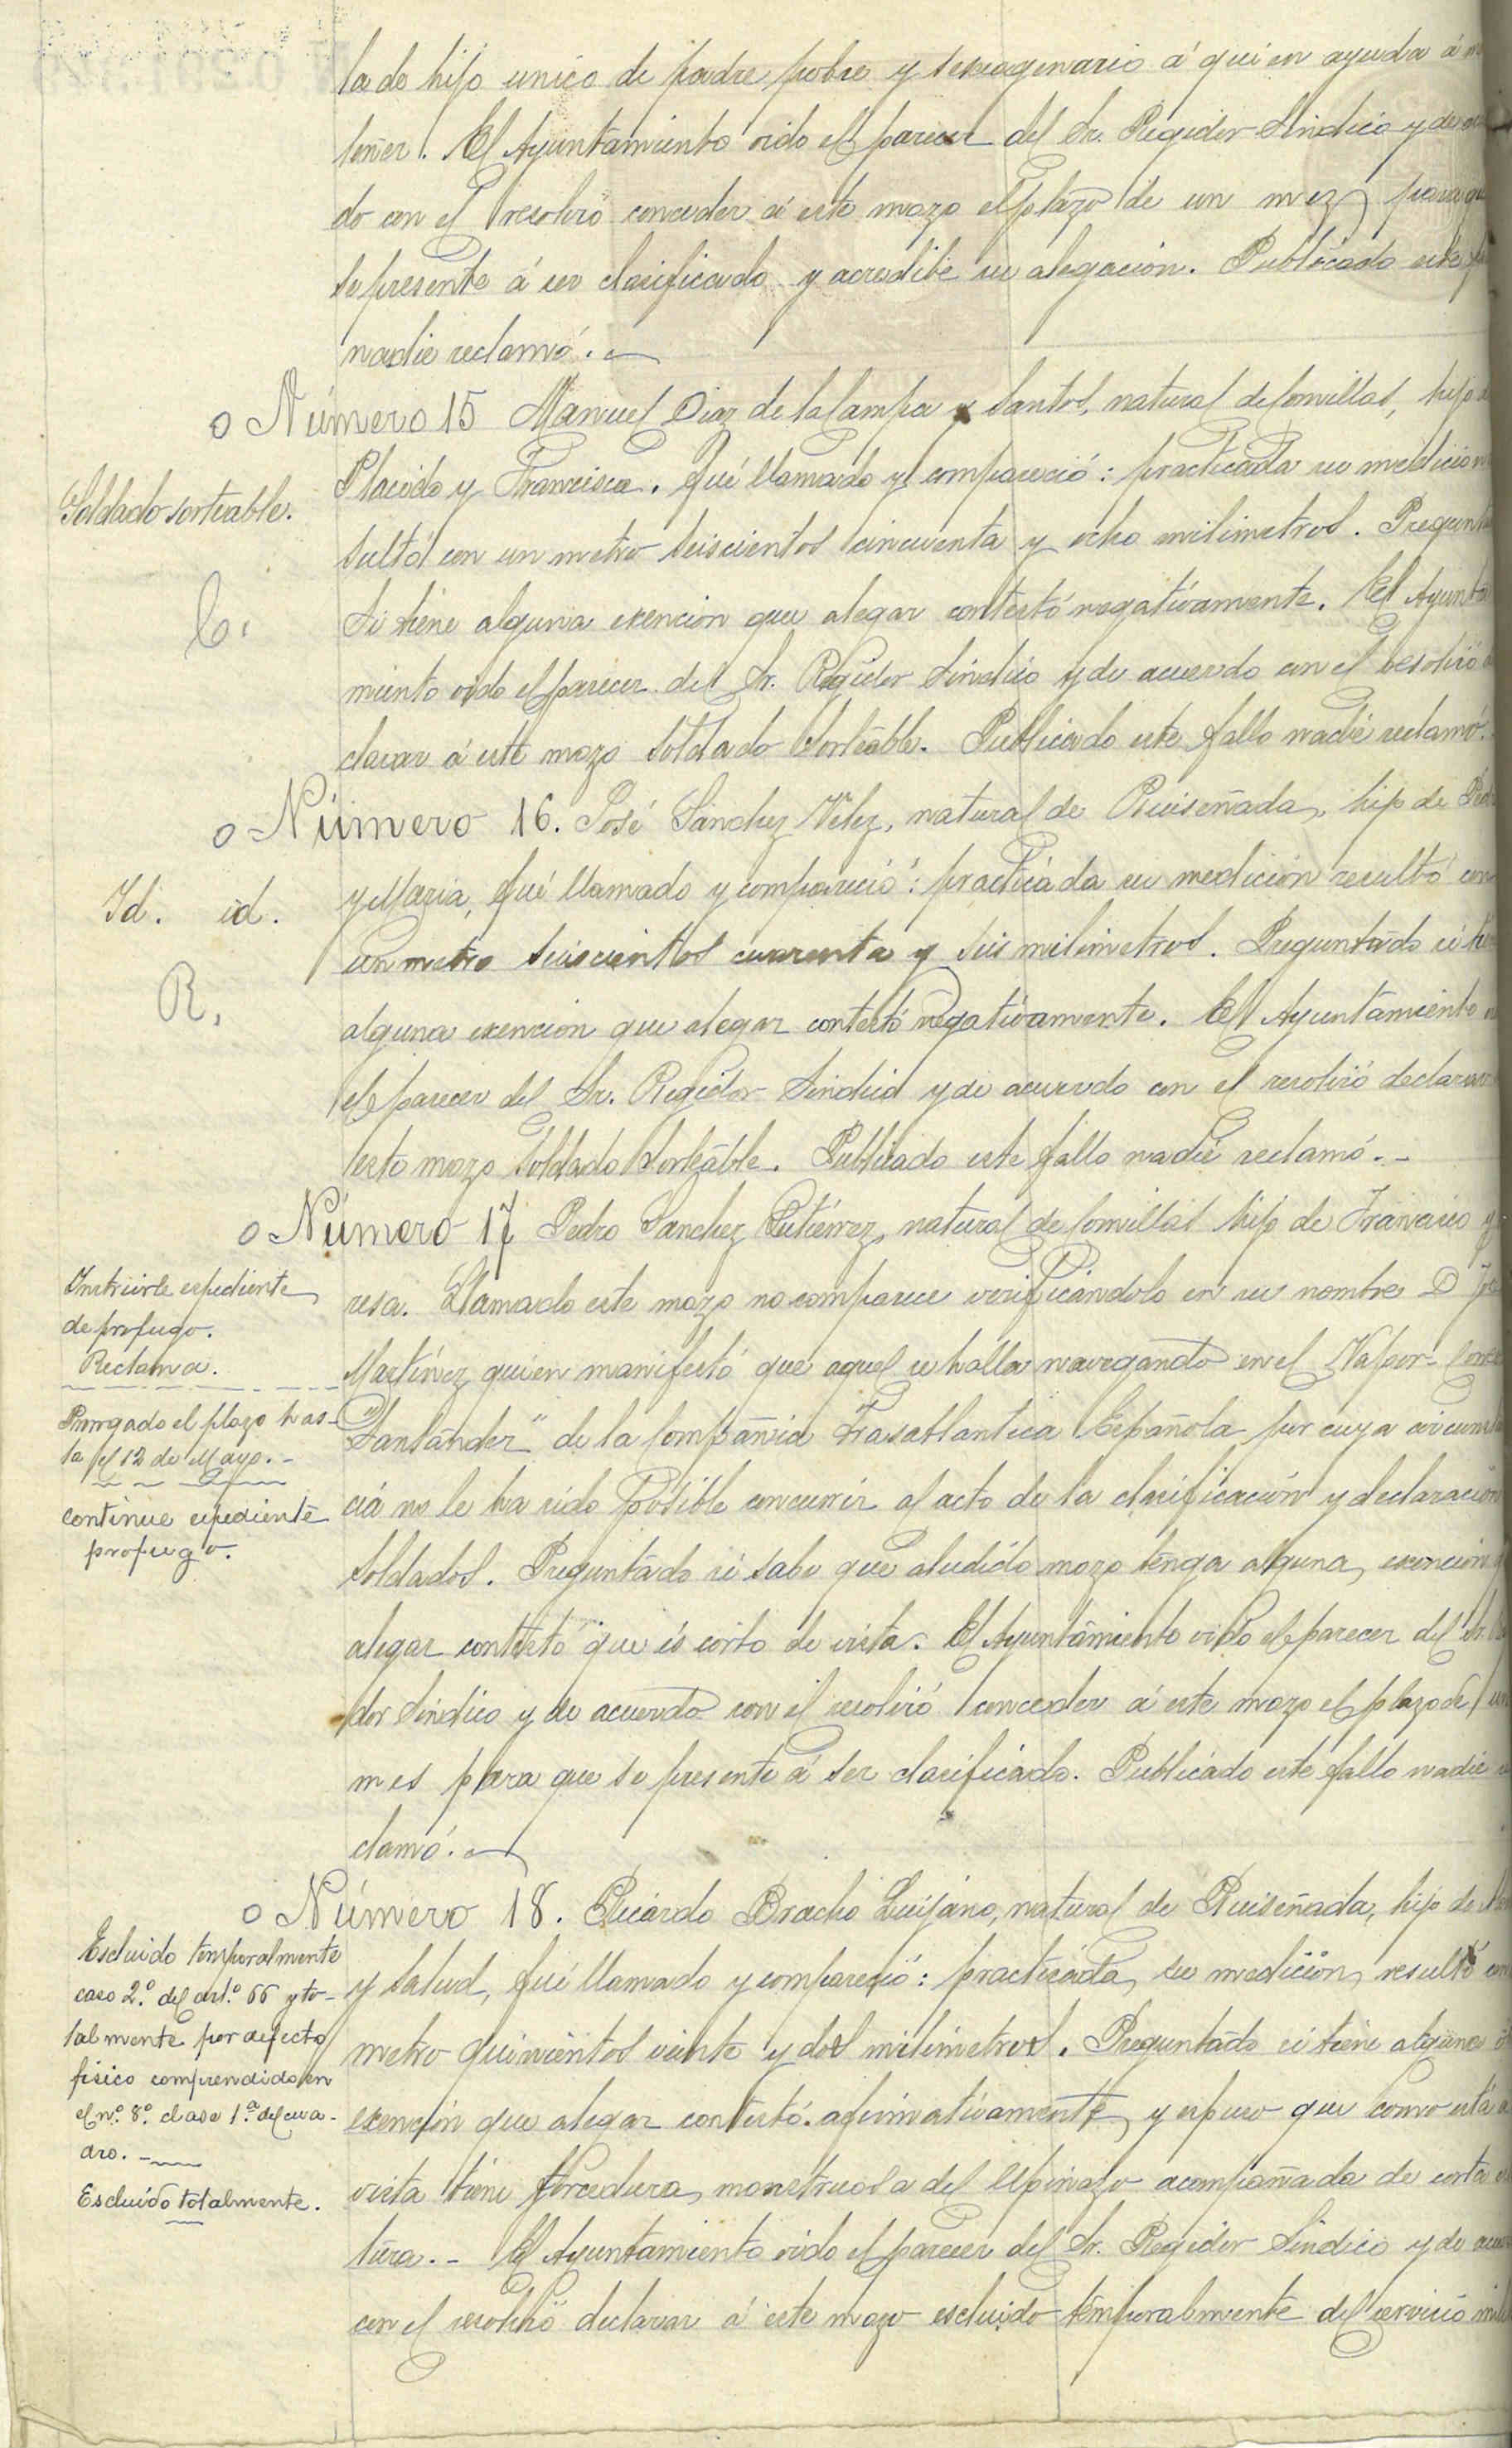 la de hijo unico de padre pobre y sexagenario á quien ayuda á
tener. El Ayuntamiento oido el parecer del Sr. Regidor Sindico y de
do con el resolvió conceder á este mozo el plazo de un mez para
se presente á ser clasificado y acredite su alegacion. Publicado este
nadie reclamó.
o Número 15 Manuel Diaz de la Campa y Santos, natural de Comillas, hijo
Soldado sorteable.
Placido y Francisca. Fué llamado y compareció: practicada su medicion
sultó con un metro seiscientos cincuenta y ocho milimetros. Pregunta
C.
Si tiene alguna exencion que alegar contestó negativamente. El Ayunta
miento oido el parecer del Sr. Regidor Sindico y de acuerdo con el resolvió
clarar á este mozo soldado sorteable. Publicado este fallo nadie reclamó.
o Número 16. José Sánchez Velez, natural de Ruiseñada, hijo de
Id. id.
y Maria, fué llamado y compareció: practicada su medición resultó con
un metro seiscientos cuarenta y seis milimetros. Preguntado si
R.
alguna exencion que alegar contestó negativamente. El Ayuntamiento
el parecer del Sr. Regidor Sindico y de acuerdo con el resolvió declarar
este mozo soldado sorteable. Publicado este fallo nadie reclamó.
o Número 17 Pedro Sanchez Gutiérrez, natural de Comillas hijo de Francisco y
Instruirle espediente
de profugo.
Reclama.
Prorrogado el plazo has-
ta el 12 de Mayo.
continue espediente
profugo.
resa. Llamado este mozo no comparece verificándolo en su nombre D
Martínez quien manifestó que aquel se halla navegando en el Vapor-
"Santander" de la Compañia Trasatlantica Española por cuya circuns
cia no le ha sido posible concurrir al acto de la clasificación y declaración
soldados. Preguntado si sabe que aludido mozo tenga alguna exencion
alegar contestó que és corto de vista. El Ayuntamiento oido el parecer del Sr.
dor Sindico y de acuerdo con él resolvió conceder á este mozo el plazo de un
mes para que se presente á ser clasificado. Publicado este fallo nadie
clamó.
o Número 18. Ricardo Bracho Quijano, natural de Ruiseñada, hijo de
Escluido temporalmente
caso 2.º del art.º 66 y to-
talmente por defecto
fisico comprendido en
el nº. 8º. clase 1.ª del cua-
dro.
Escluido totalmente.
y Salud, fué llamado y compareció: practicada su medición resultó
metro quinientos veinte y dos milimetros. Preguntado si tiene alguna
exención que alegar contestó afirmativamente y espuso que como está
vista tiene torcedura monstruosa del espinazo acompañada de corta
tura. El Ayuntamiento oido el parecer del Sr. Regidor Sindico y de
con el resolvió declarar á este mozo escluido temporalmente del servicio